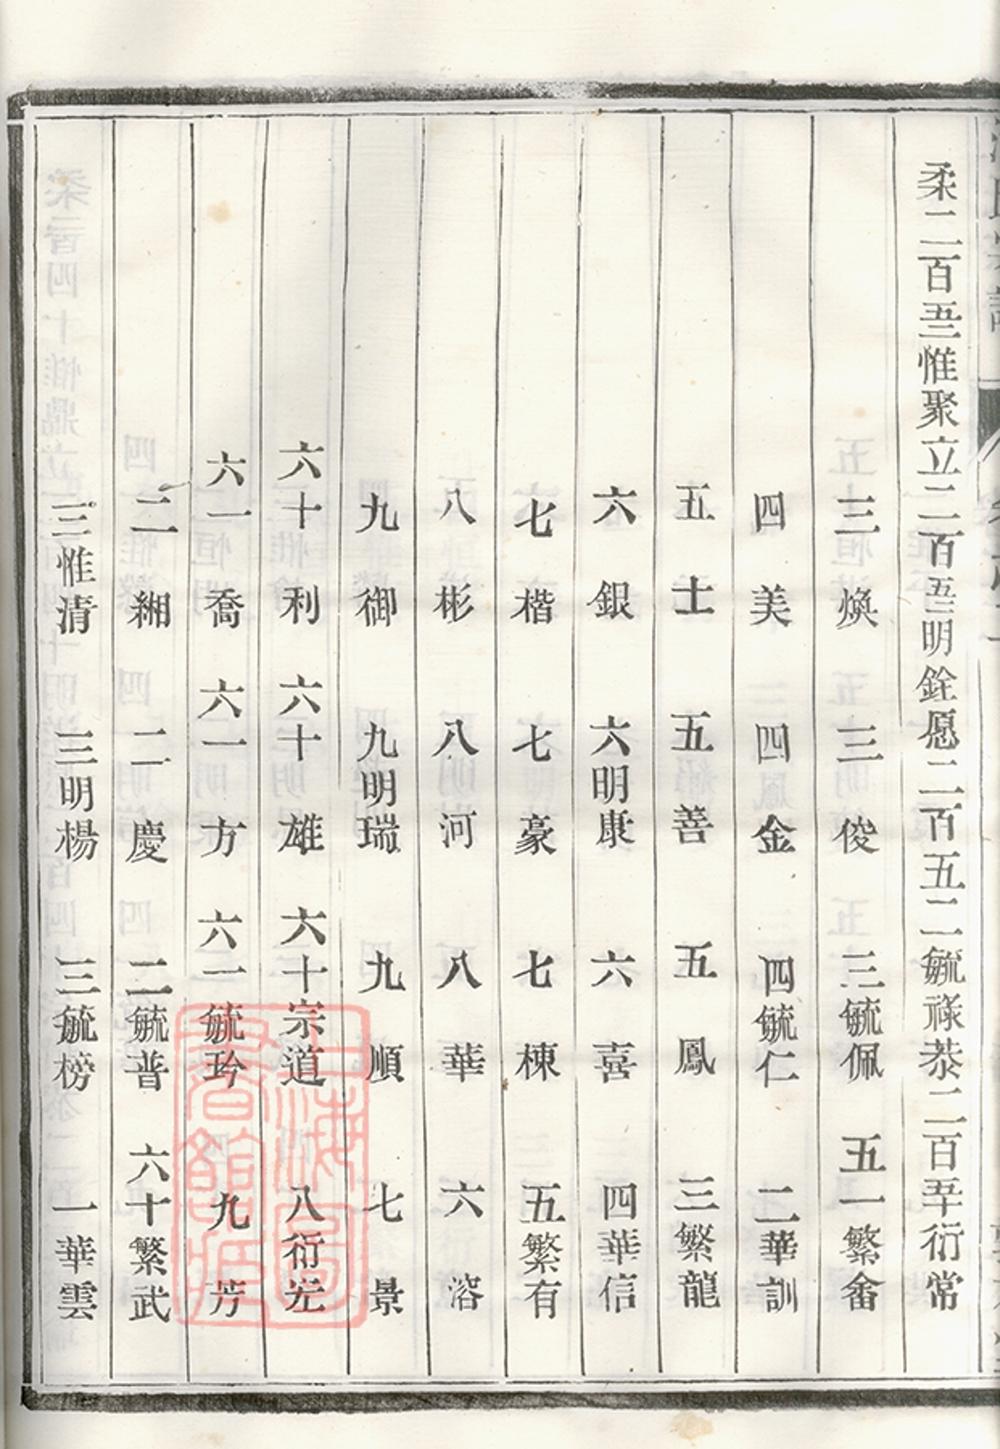 柔二百五三惟聚立二百五三明銓愿二百五二毓祿恭二百五十衍常
三煥 三俊 三毓佩 五一繁畬
四美 四金 四毓仁 二華訓
五士 五善 五鳳 三繁龍
六銀 六明康 六喜 四華信
七楷 七豪 七棟 五繁有
八彬 八河 八華 六溶
九御 九明瑞 九順 七景
六十利 六十雄 六十宗道 八衍左
六一喬 六一方 六一毓玲 九芳
二緗 二慶 二毓普 六十繁武
三惟清 三明楊 三毓榜 一華雲
上海圖書館藏